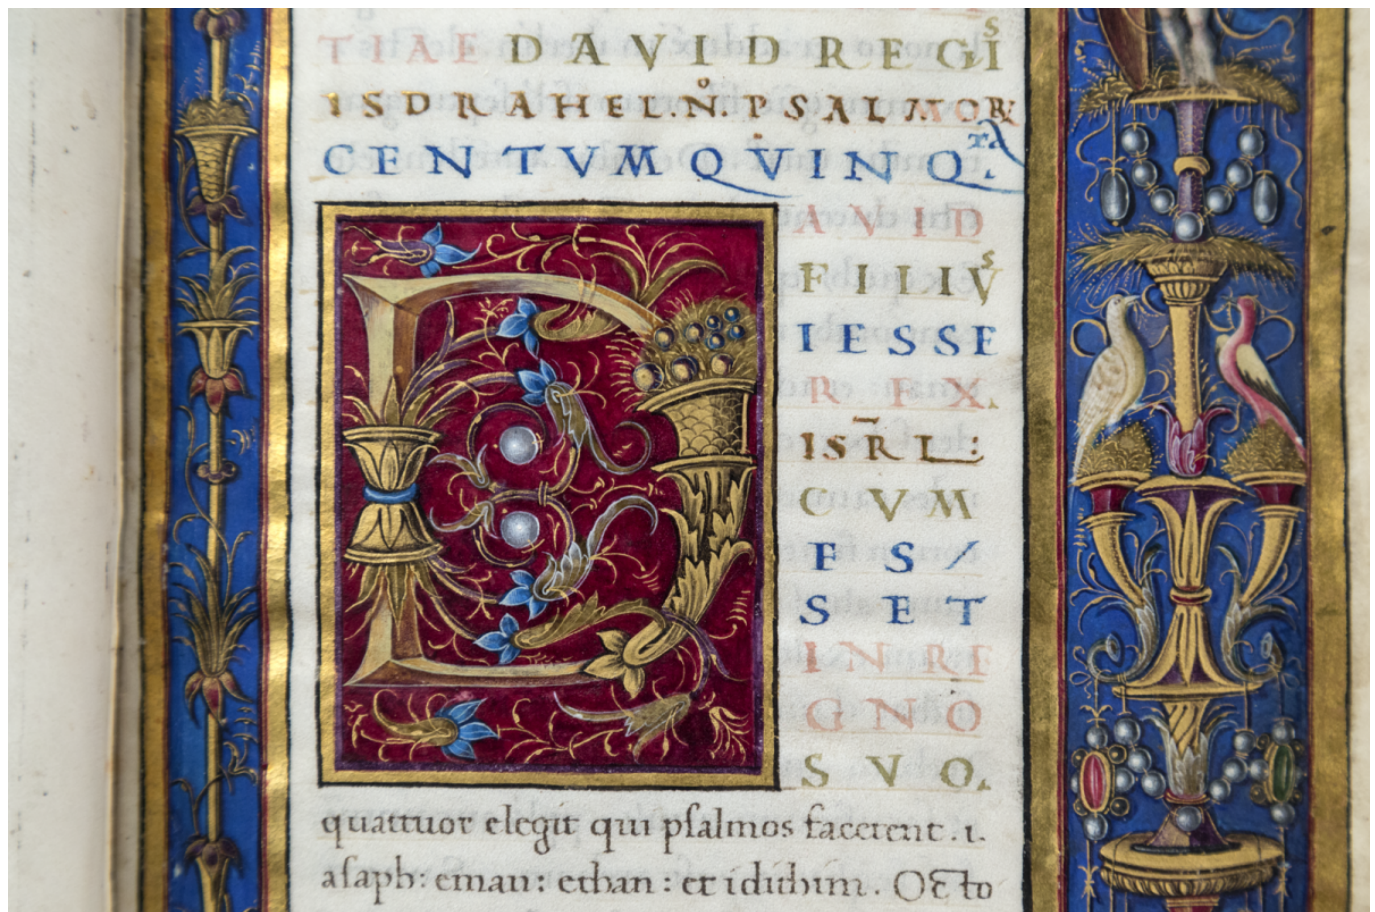 TIAE DAVID REGIS
ISDRAHEL.N̊.PSALMOꝜ
CENTVM QVINQ.ra
DAVID
FILIVS
IESSE
REX.
ISR̄L:
CVM
ESSET
IN RE
GNO
SVO.
quattuor elegit qui pſalmos facerent.ı.
aſaph: eman: ethan: et idithim. Octo